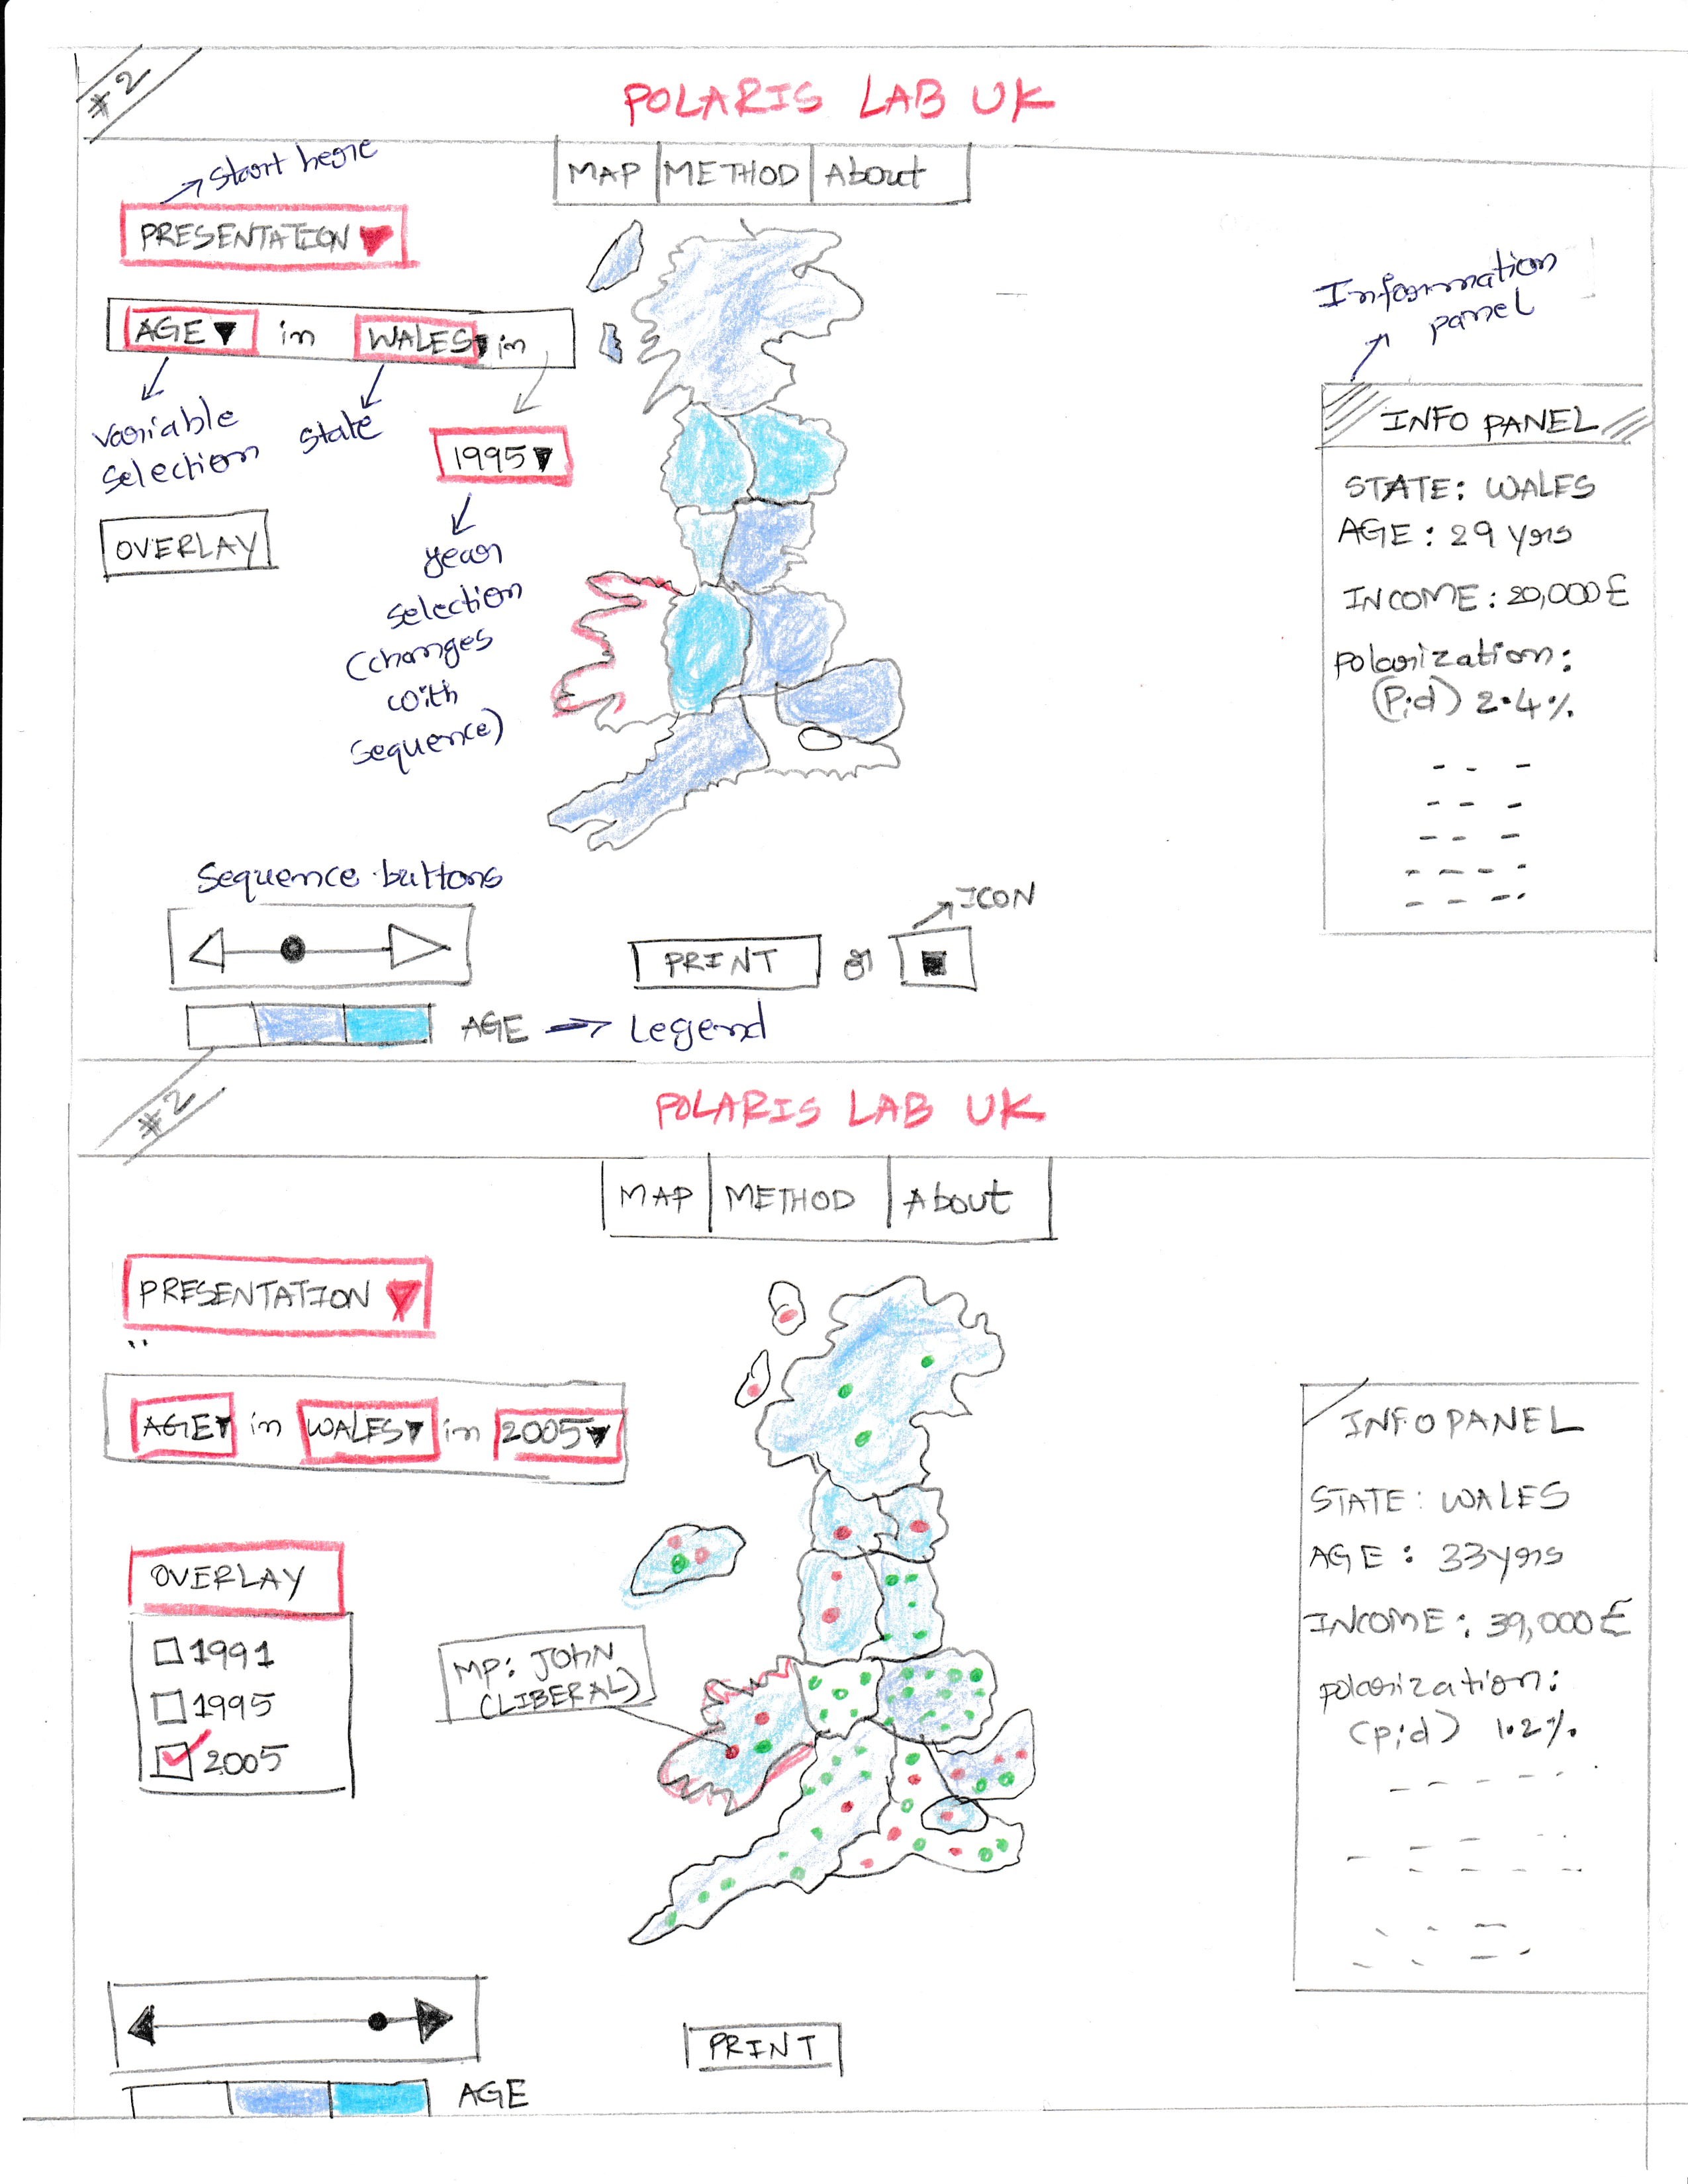 #2
POLARIS LAB UK
MAP METHOD About
Start here
PRESENTATION
AGE in WALES in
variable
selection
state
1995
year
selection
(changes
with
sequence)
OVERLAY
Information
panel
INFO PANEL
STATE: WALES
AGE: 29 yrs
INCOME: 20,000£
polarization:
(P;d) 2.4%
Sequence buttons
PRINT or
ICON
AGE → Legend
#2
POLARIS LAB UK
MAP METHOD About
PRESENTATION
AGE in WALES in 2005
OVERLAY
1991
1995
2005
MP: JOHN
(LIBERAL)
INFO PANEL
STATE: WALES
AGE: 33yrs
INCOME: 39,000£
polarization:
(p;d) 1.2%
PRINT
AGE